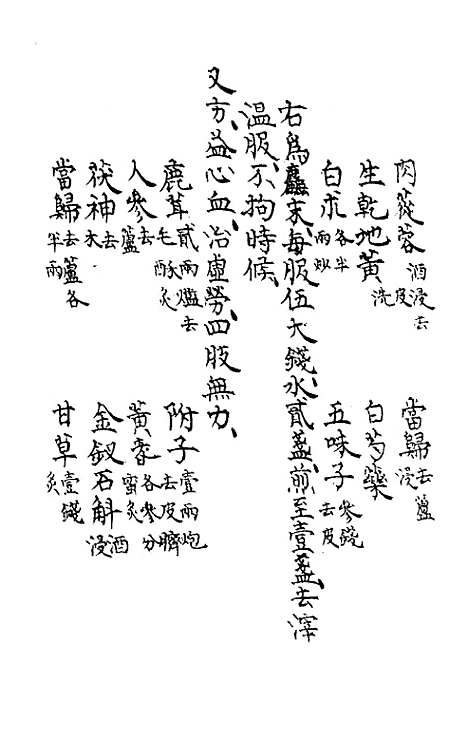 肉蓯蓉 酒浸去皮洗 當歸 去蘆浸
生乾地黃 白芍藥
白朮 各半兩炒 五味子 叄錢去皮
右爲麤末、每服伍大錢、水貳盞、煎至壹盞、去滓
温服、不拘時候、
又方、益心血、治虛勞、四肢無力、
鹿茸 貳兩爁去毛酥炙 附子 壹兩炮去皮臍
人參 去蘆 黃耆 各叄分蜜炙
茯神 去木 金釵石斛 酒浸
當歸 去蘆各半兩 甘草 壹錢炙